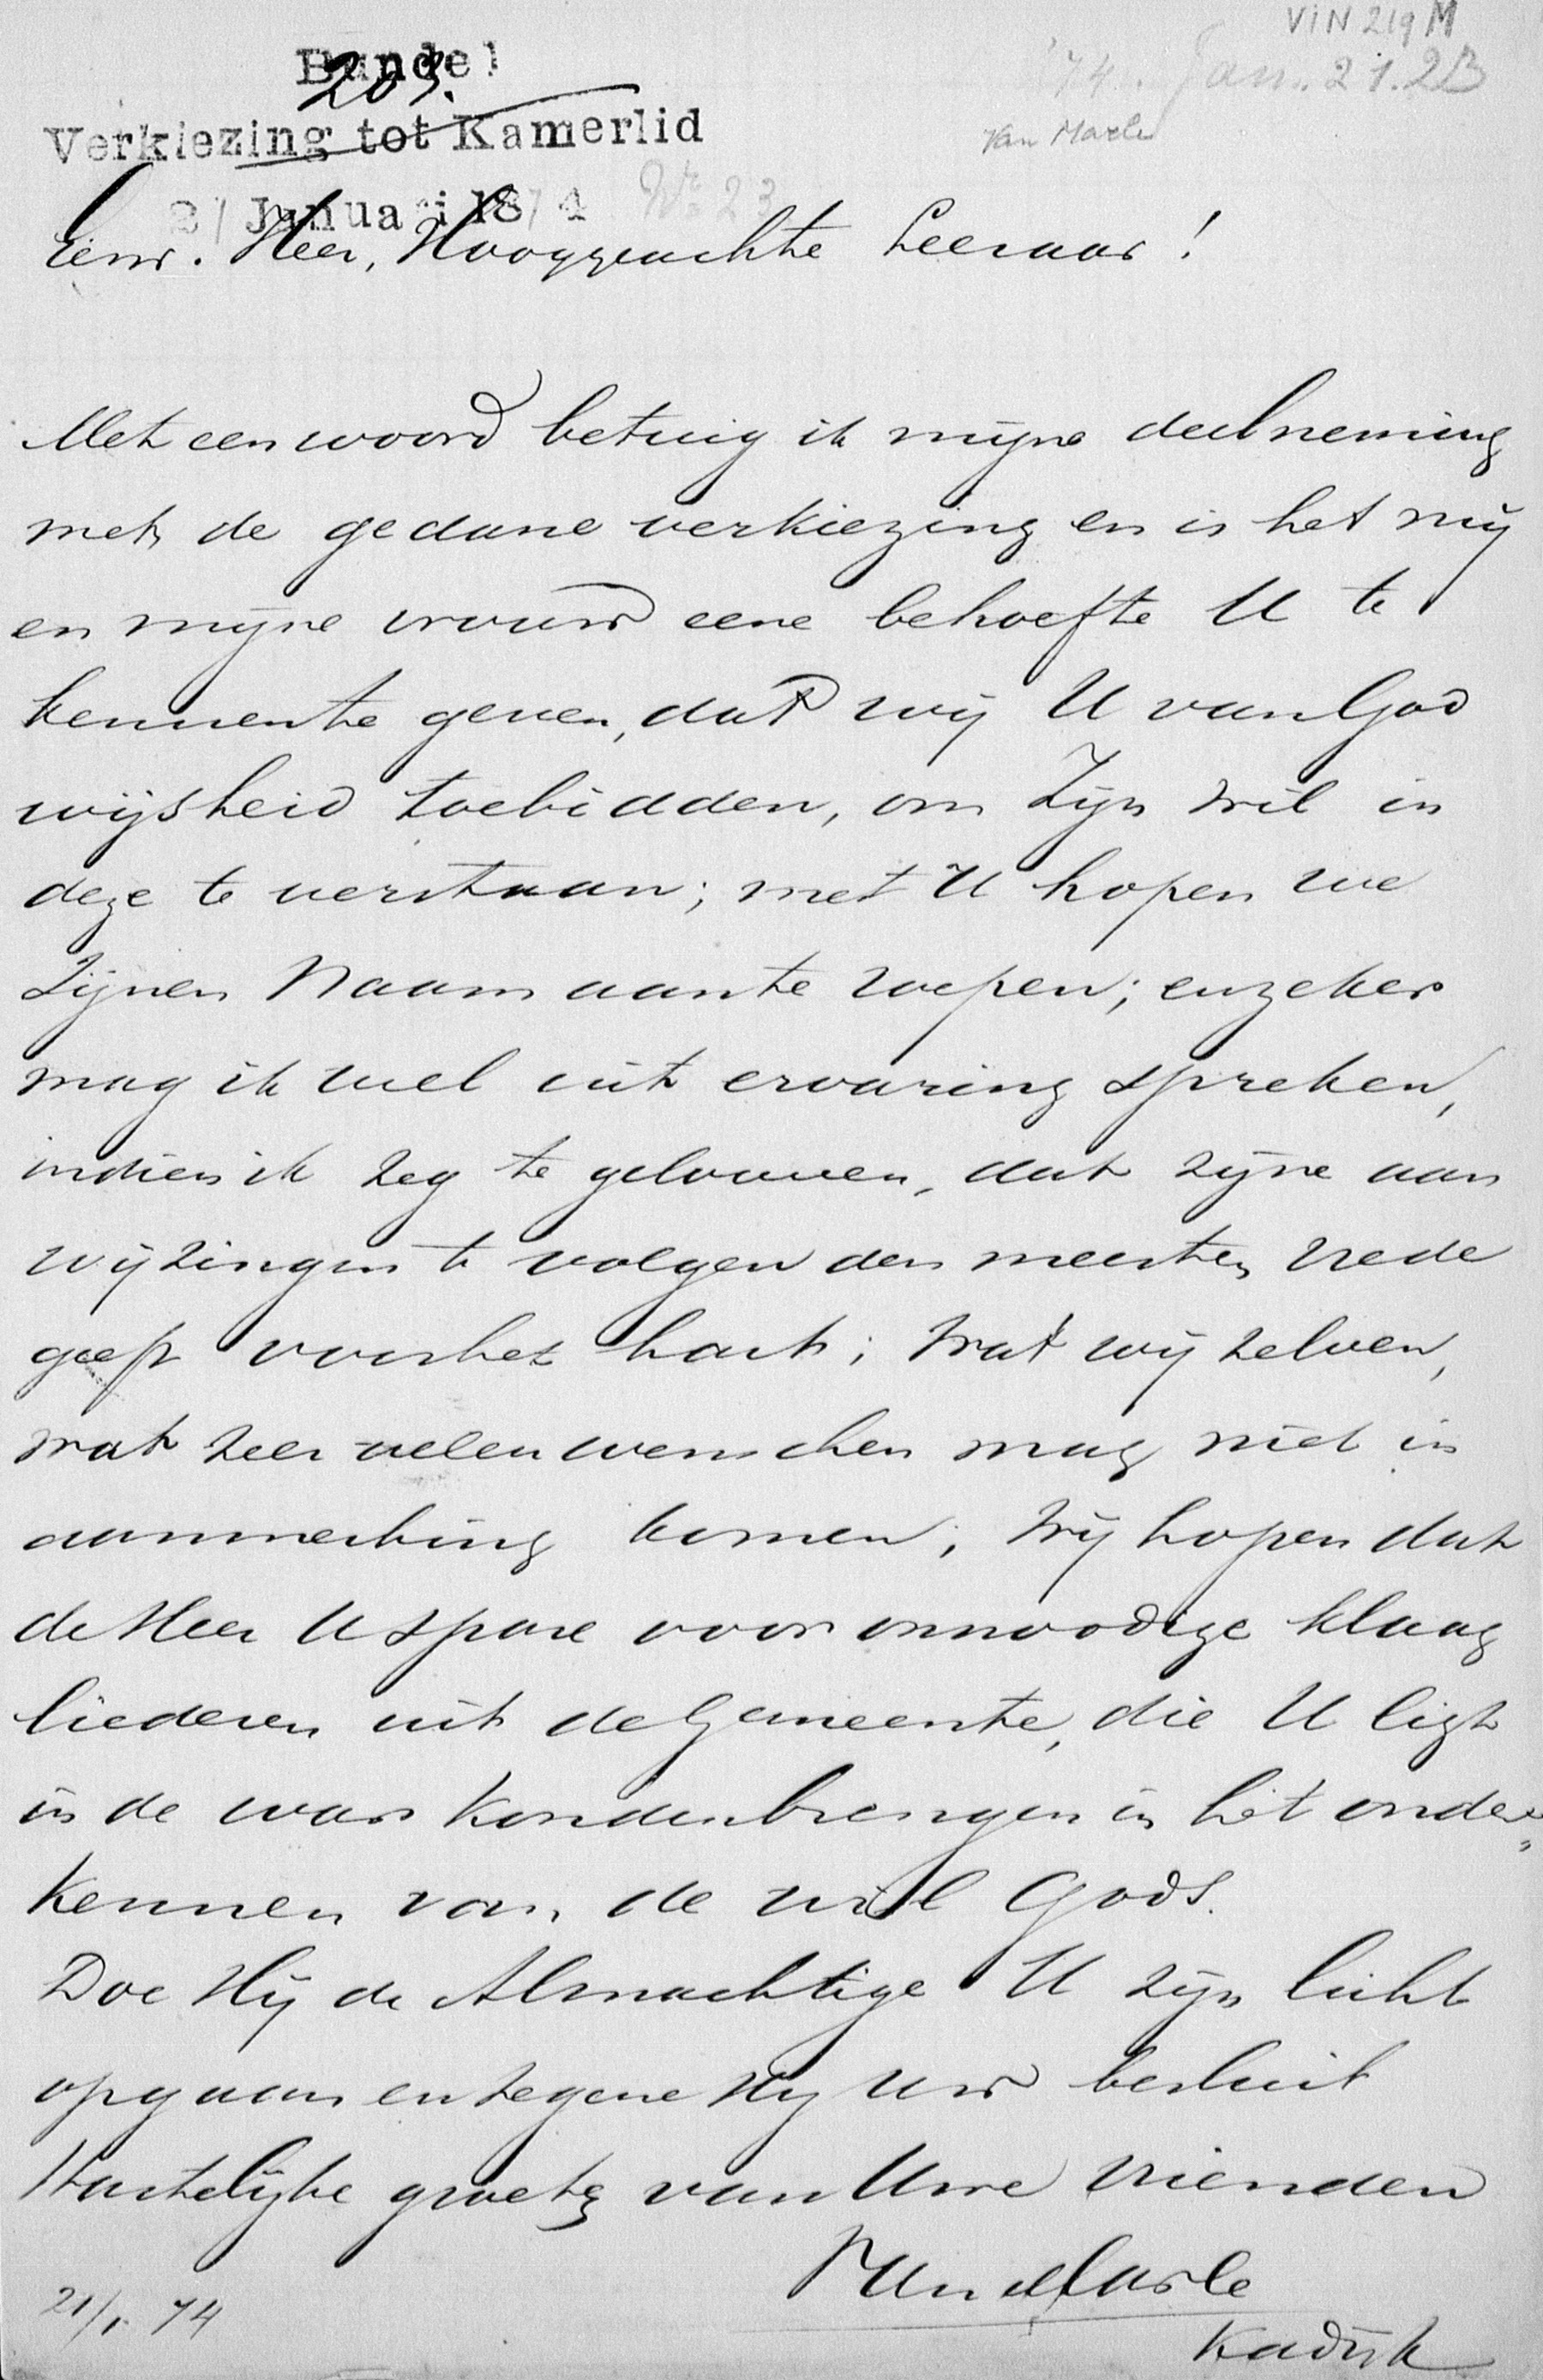 VIN 219 M
74. Jan. 21. 2B
Van Marle
Bundel
203.
Verkiezing tot Kamerlid
21 Januari 1874 No 23
Eerw. Heer, Hooggeachte Leeraar!
Met een woord betuig ik mijne deelneming
met de gedane verkiezing en is het mij
en mijne vrouw eene behoefte U te
kennen te geven, dat wij U van God
wijsheid toebidden, om Zijn wil in
deze te verstaan; met U hopen we
Zijnen Naam aan te roepen; en zeker
mag ik wel uit ervaring spreken,
indien ik zeg te gelooven, dat zijne aan
wijzingen te volgen den meesten vrede
geeft voor het hart; wat wij zelven,
wat zeer velen wenschen mag niet in
aanmerking komen; wij hopen dat
de Heer U spare voor onnoodige klaag
liederen uit de Gemeente, die U ligt
in de war konden brengen in het onder„
kennen van de wil Gods.
Doe Hij de Almachtige U zijn licht
opgaan en zegene Hij Uw besluit
Hartelijke groete van Uwe vrienden
Van Marle
Kadijk
21/1 74